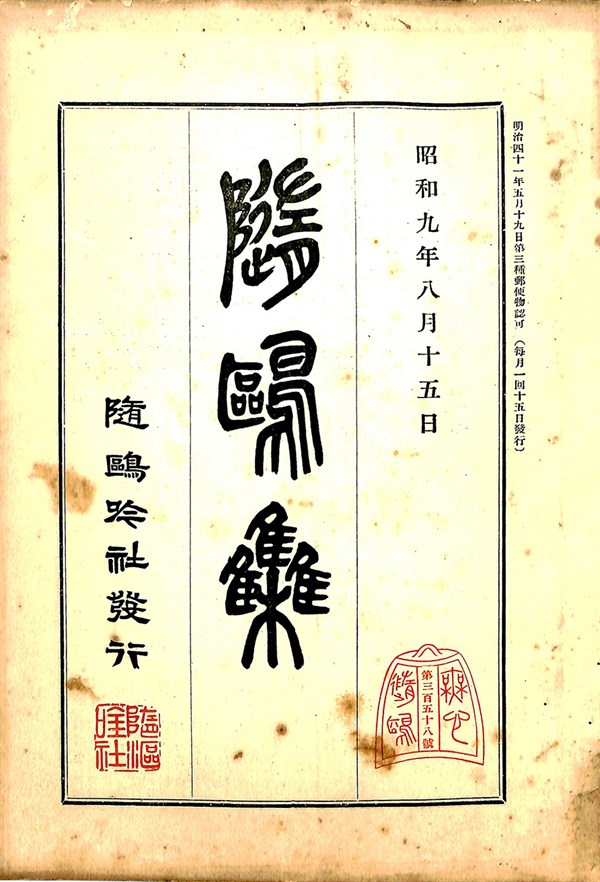 明治四十一年五月十九日第三種郵便物認可（每月一回十五日發行）
昭和九年八月十五日
無心
第三百五十八號
隨鷗
隨鷗集
隨鷗吟社發行
隨鷗
吟社